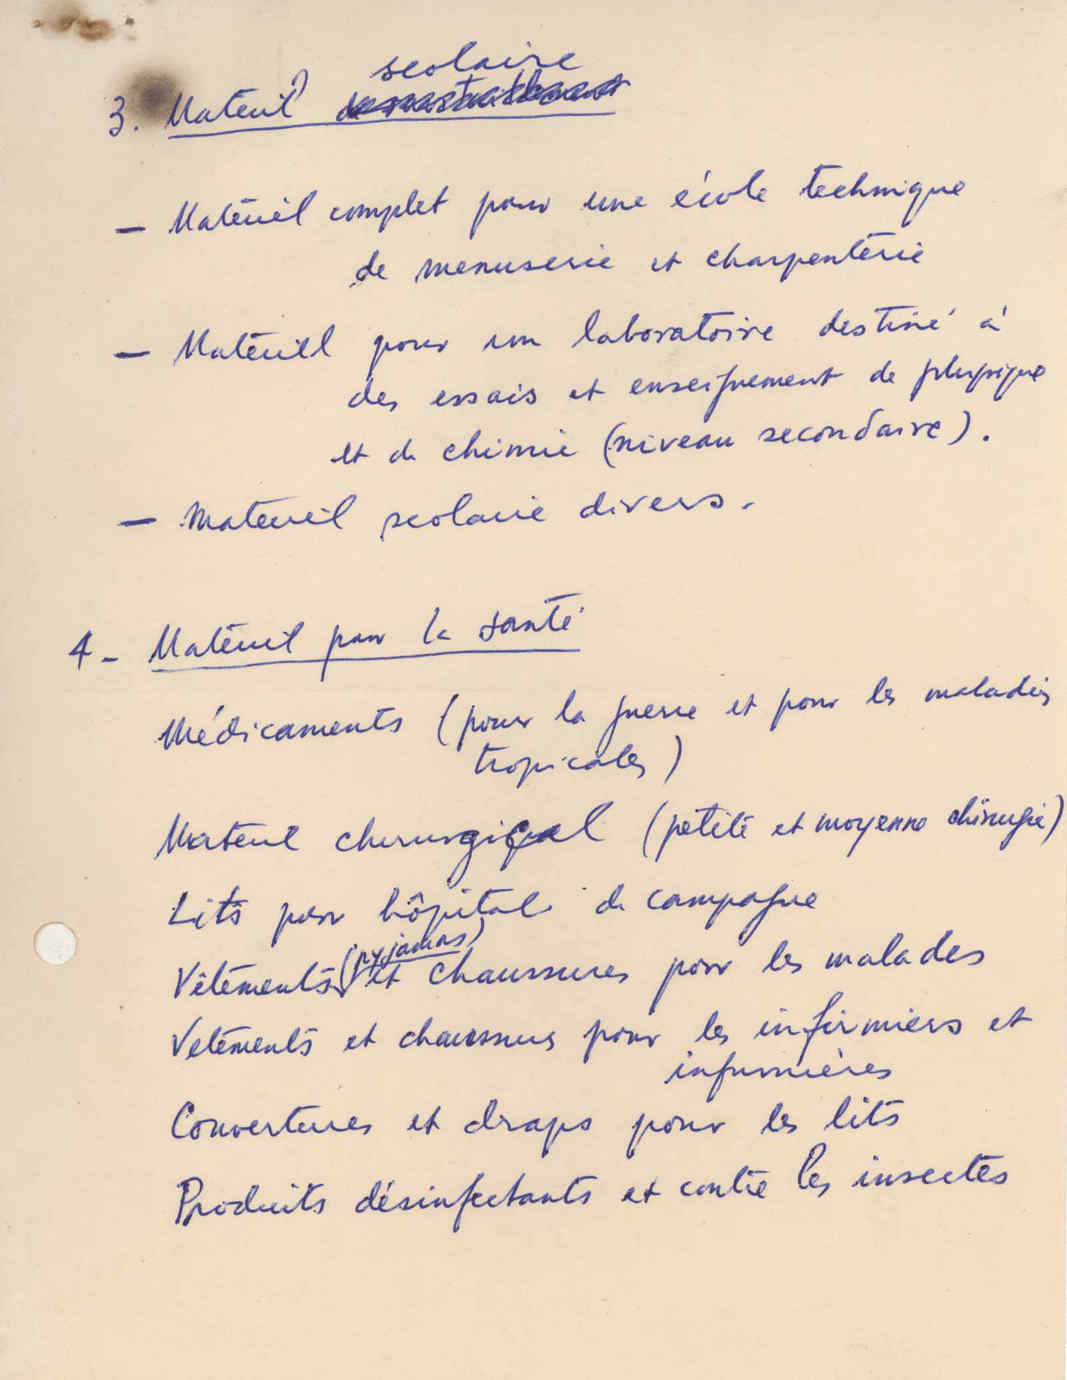 3. Matériel scolaire
— Matériel complet pour une école technique
de menuserie et charpenterie
— Matériel pour un laboratoire destiné à
des essais et enseignement de physique
et de chimie (niveau secondaire).
— Materiel scolaire divers.
4 - Matériel pour la santé
Médicaments (pour la guerre et pour les maladies
tropicales)
Materiel chirurgical (petite et moyenne chirurgie)
Lits pour hôpital de campagne
Vêtements (pyjamas) et chaussures pour les malades
Vetements et chaussures pour les infirmiers et
infirmières
Couvertures et draps pour les lits
Produits désinfectants et contre les insectes